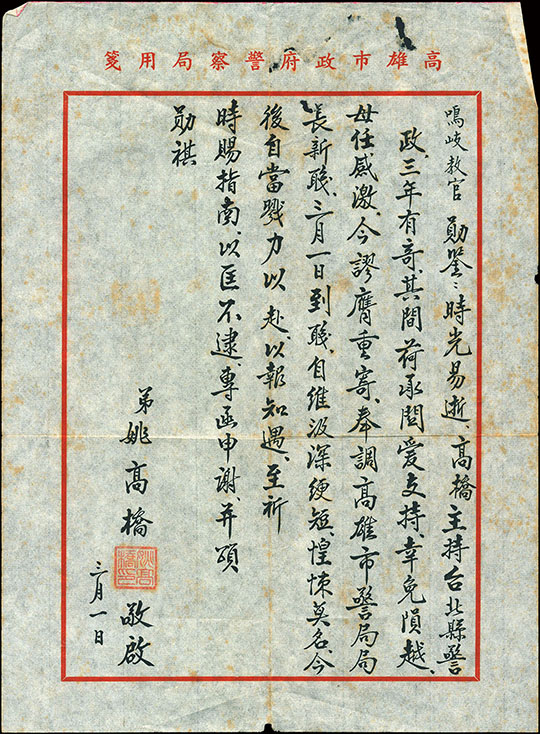 高雄市政府警察局用箋
鳴岐教官勛鑒：時光易逝、高橋主持台北縣警
政、三年有奇、其間荷承關愛支持、幸免隕越、
毋任感激、今謬膺重寄、奉調高雄市警局局
長新職、三月一日到職、自維汲深綆短、惶悚莫名、今
後自當戮力以赴、以報知遇、至祈
時賜指南、以匡不逮、專函申謝、并頌
勛祺
弟姚高橋敬啟
姚高橋印
三月一日